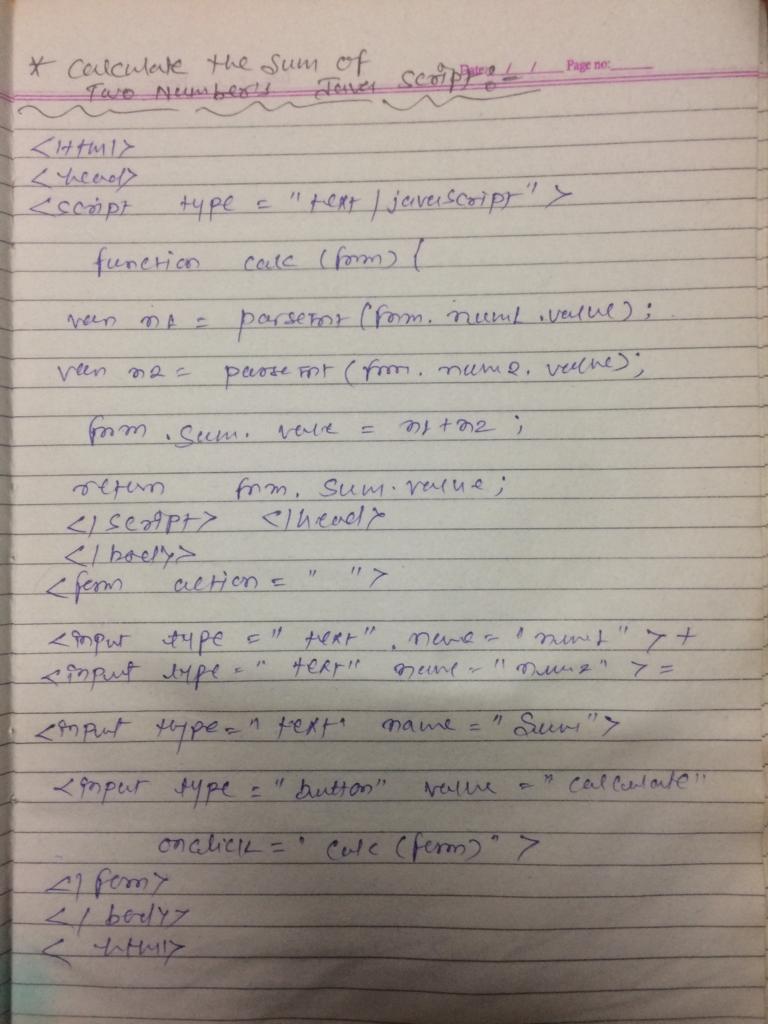 * Calculate the Sum of
Date: / / Page no:
Two Number's Java Script :-
<Html>
<head>
<script type = "text / javascript" >
function calc (form) {
var n1 = parseInt (form. num1 .value) ;
var n2 = parseInt (form. num2. value);
form .Sum. value = n1+n2 ;
return form. Sum.value ;
</script> </head>
</body>
<form action = " ">
<input type =" text" . name = "num1" > +
<input type = " text" name = "num2" > =
<input type = " text" name = " Sum">
<input type = " button" value = " calculate"
onclick = " calc (form) " >
</ form>
</ body>
< html>